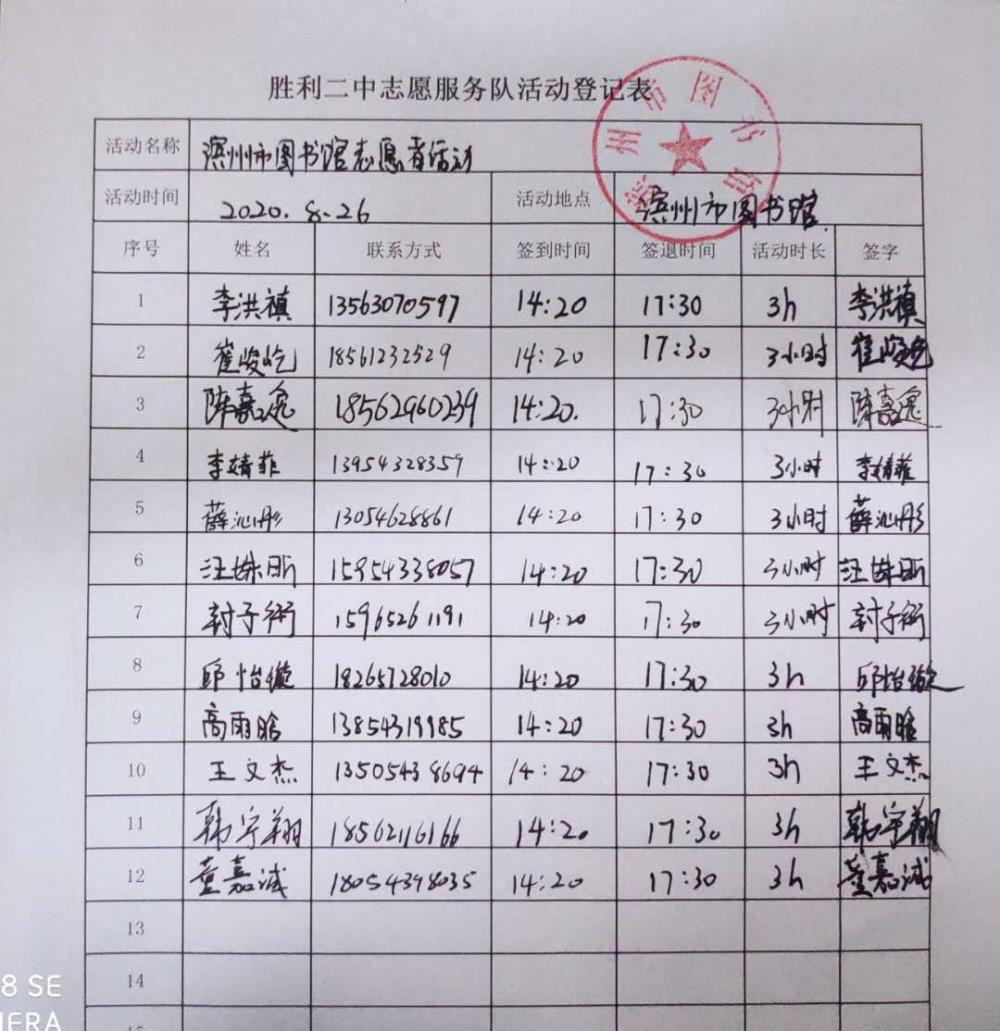 胜利二中志愿服务队活动登记表
滨州市图书馆
活动名称 滨州市图书馆志愿者活动
活动时间 2020.8.26 活动地点 滨州市图书馆
序号 姓名 联系方式 签到时间 签退时间 活动时长 签字
1 李洪禛 13563070597 14:20 17:30 3h 李洪禛
2 崔峻屹 18561232529 14:20 17:30 3小时 崔峻屹
3 陈嘉逸 18562960239 14:20. 17:30 3小时 陈嘉逸
4 李婧菲 13954328359 14:20 17:30 3小时 李婧菲
5 薛沁彤 13054628861 14:20 17:30 3小时 薛沁彤
6 汪姝昕 15954338057 14:20 17:30 3小时 汪姝昕
7 封子衔 15965261191 14:20 17:30 3小时 封子衔
8 邱怡璇 18265728010 14:20 17:30 3h 邱怡璇
9 高雨晗 13854319985 14:20 17:30 3h 高雨晗
10 王文杰 13505438694 14:20 17:30 3h 王文杰
11 韩宇翔 18562116166 14:20 17:30 3h 韩宇翔
12 董嘉诚 18054398035 14:20 17:30 3h 董嘉诚
13
14
15
8 SE
MERA